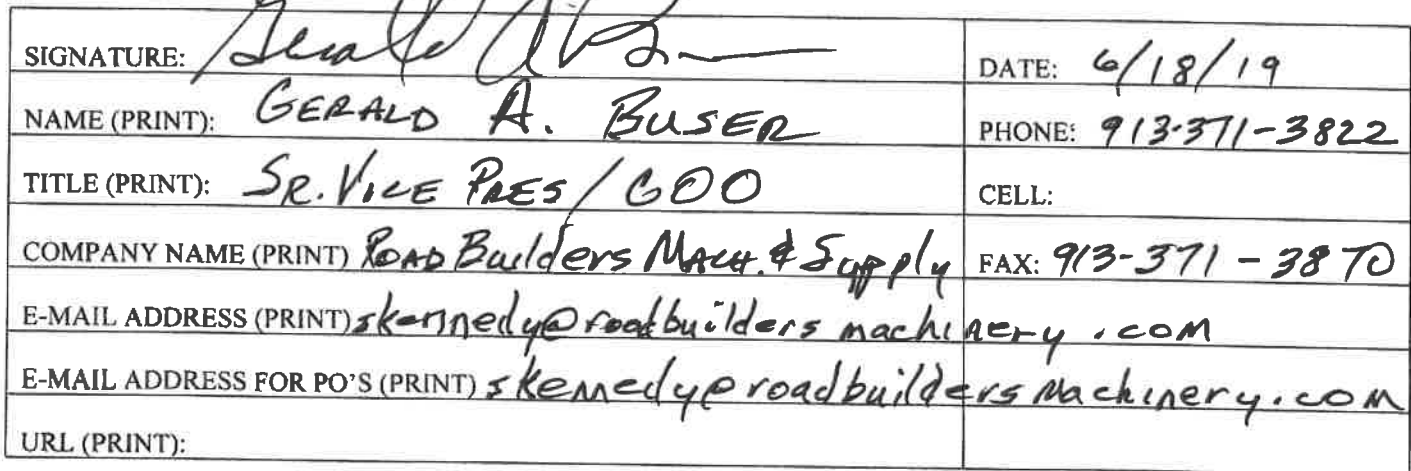 SIGNATURE: Gerald A B DATE: 6/18/19
NAME (PRINT): GERALD A. BUSER PHONE: 913-371-3822
TITLE (PRINT): SR. VICE PRES / COO CELL:
COMPANY NAME (PRINT) ROAD Builders MACH. & Supply FAX: 913-371-3870
E-MAIL ADDRESS (PRINT) skennedy@roadbuildersmachinery.com
E-MAIL ADDRESS FOR PO'S (PRINT) skennedy@roadbuildersmachinery.com
URL (PRINT):